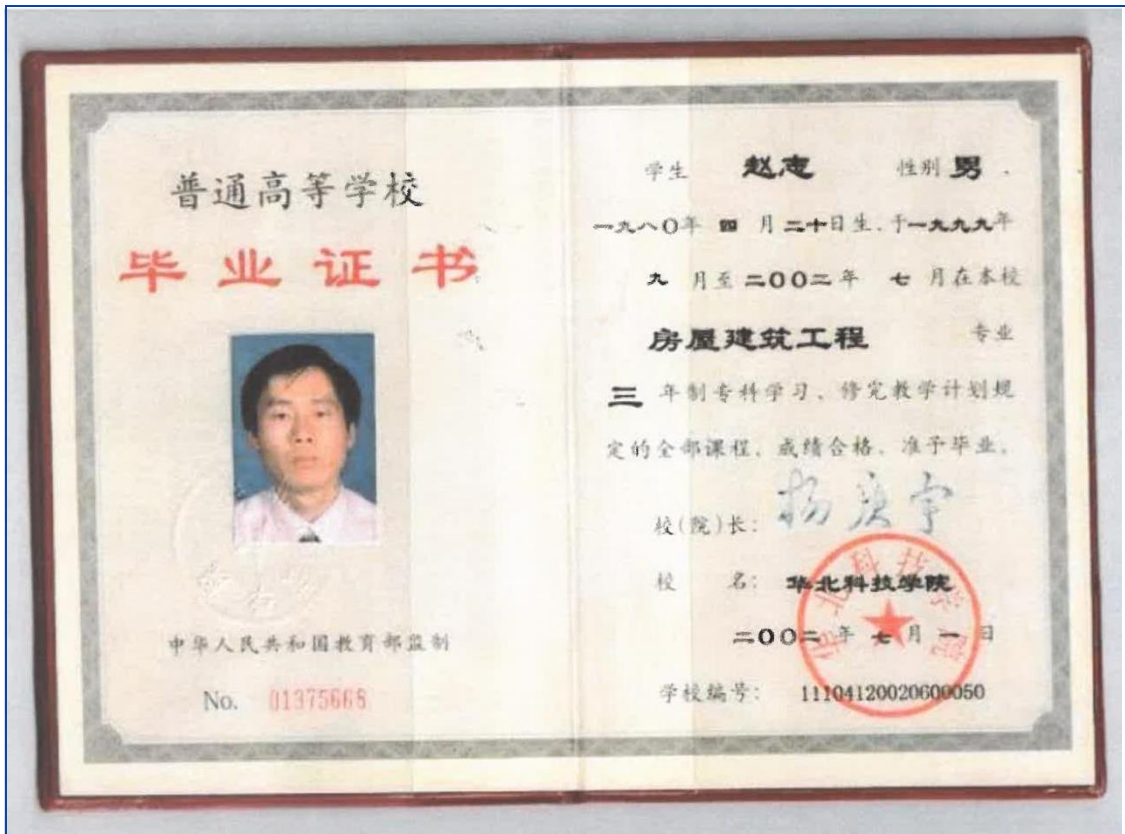 普通高等学校
毕业证书
中华人民共和国教育部监制
No. 01375668
学生 赵志 性别 男.
一九八〇年 四 月 二十日生, 于一九九九年
九 月至 二〇〇二年 七 月在本校
房屋建筑工程 专业
三 年制专科学习, 修完教学计划规
定的全部课程, 成绩合格, 准予毕业。
校(院)长:
校 名: 华北科技学院
华北科技学院
二〇〇二年 七 月 一 日
学校编号: 111041200206000050